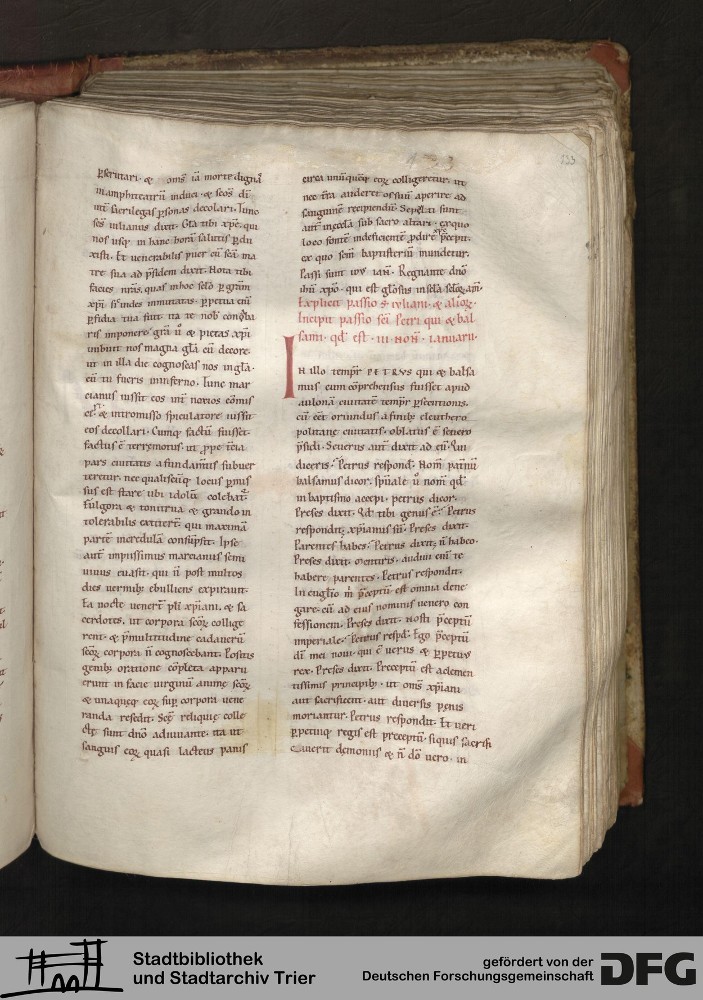 233
p̄scrutari · & om̄s iā morte dignā
in amphiteatrū induci · & sc̄os dī
uti sacrilegas ꝑsonas decolari · Tunc
sc̄s iulianus dixit · Gła tibi xp̄e · qui
nos usq; in hanc horā salutis ꝑdu
xisti · Et uenerabilis puer cū sc̄a ma
tre sua ad p̄sidem dixit · Nota tibi
facies nr̄as · quas in hoc scło ꝑ gr̄am
xp̄i · si uides inmutatas · ꝑpetua enī
ꝑfidia tua sunt
ris imponere · gr̄a ū & pietas xp̄i
imbuit nos magna gła cū decore ·
ut in illa die cognoscas nos in gła ·
cū tu fueris in inferno · Tunc mar
cianus iussit eos int̄ noxios cōmis
& intromisso spiculatore iussit
eos decollari · Cumq; factū fuisset ·
factus ē terremotus · ut ꝓpe tercia
pars ciuitatis a fundam̄tis subuer
teretur · nec qualiscūq; locus ꝑmis
sus est stare ubi idolū colebat̄ ·
Fulgora & tonitrua & grando in
tolerabilis extitert̄ · qui maximā
partē incredulā consūpsit · Ipse
aut̄ impiissimus marcianus semi
uiuus euasit · qui n̄ post multos
dies uermib; ebulliens expirauit ·
Ea nocte uenert̄ pl̄i xp̄iani · & sa
cerdotes · ut corpora sc̄oꝝ colligt
rent · & p̄ multitudine cadauerū
sc̄oꝝ corpora n̄ cognoscebant · Positis
genib; oratione cōpleta apparu
erunt in facie uirginū animę sc̄oꝝ
& unaquęq; eoꝝ sup̄ corpora uene
randa resedit · Seꝗ reliquię colle
ctę sunt dn̄o adiuuante · ita ut
sanguis eoꝝ quasi lacteus panis
circa unū quodq; eoꝝ colligeretur · ut
nec t̄ra auderet os suū aperire ad
sanguinē recipiendū · Sepułti sunt
aut̄ in ęcclā sub sacro altari · ex quo
loco fontē indeficientē ꝓdire p̄cepit ·
ex quo sc̄m baptisteriū mundetur ·
Passi sunt idꝰ ian̄ · Regnante dn̄o
ih̄u xp̄o · qui est głosus in scła scłoꝝ am̄ ·
Explicit passio s̄ iuliani · & alioꝝ ·
Incipit passio sc̄i Petri qui & bal
sami · qđ est · iii · non̄ · ianuarii ·
IN illo tempr̄ PETRVS qui & balsa
mus cum cōprehensus fuisset apud
aulonā ciuitatē tempr̄ ꝑsecutionis ·
cū eēt oriundus a finib; eleuthero
politanę ciuitatis · oblatus ē seuero
p̄sidi · Seuerus aut̄ dixit ad eū · Qui
diceris · Petrus respond̄ · Nom̄ patriū
balsamus dicor · spūale ū nom̄ qđ
in baptismo accepi · petrus dicor ·
Preses dixit · Qđ tibi genus ē · Petrus
respondit · xp̄ianus sū · Preses dixit ·
Parentes habes · Petrus dixit · n̄ habeo ·
Preses dixit · Mentiris · audiui enī te
habere parentes · Petrus respondit ·
In euglio m̄ p̄ceptū est omnia dene
gare · cū ad eius nominis uenero con
fessionem · Preses dixit · Nosti p̄ceptū
imperiale · Petrus respd̄ · Ego p̄ceptū
dī mei noui · qui ē uerus & ꝑpetuus
rex · Preses dixit · Preceptū est a clemen
tissimis principib; · ut om̄s xp̄iani
aut sacrificent · aut diuersis pęnis
moriantur · Petrus respondit · Et ueri
ꝑpetuiq; regis est preceptū · siquis sacrifi
cauerit demoniis & n̄ dō uero · in
Stadtbibliothek
und Stadtarchiv Trier
gefördert von der
Deutschen Forschungsgemeinschaft
DFG